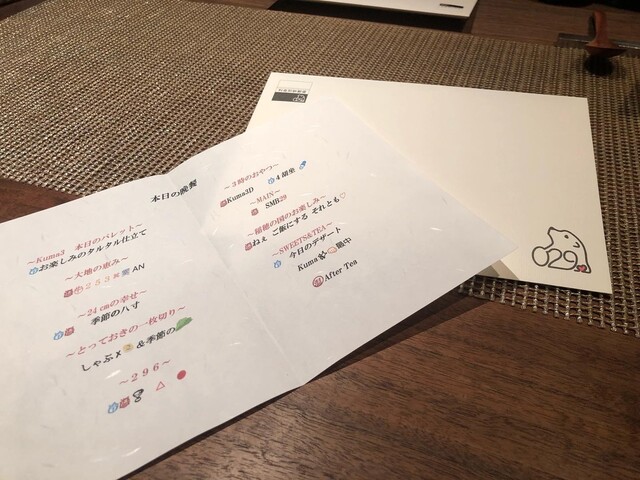 本日の晩餐
~Kuma3 本日のパレット~
お楽しみのタルタル仕立て
~大地の恵み~
253 AN
~24cmの幸せ~
季節のハす
~とっておきの一枚切り~
しゃぶx &季節の
~296~
~3時のおやつ~
Kuma3D 4胡坐
~MAIN~
SMB29
~稲穂の国のお楽しみ~
ねぇ ご飯にする それとも♡
~SWEETS&TEA~
今日のデザート
Kuma 中
After Tea
029